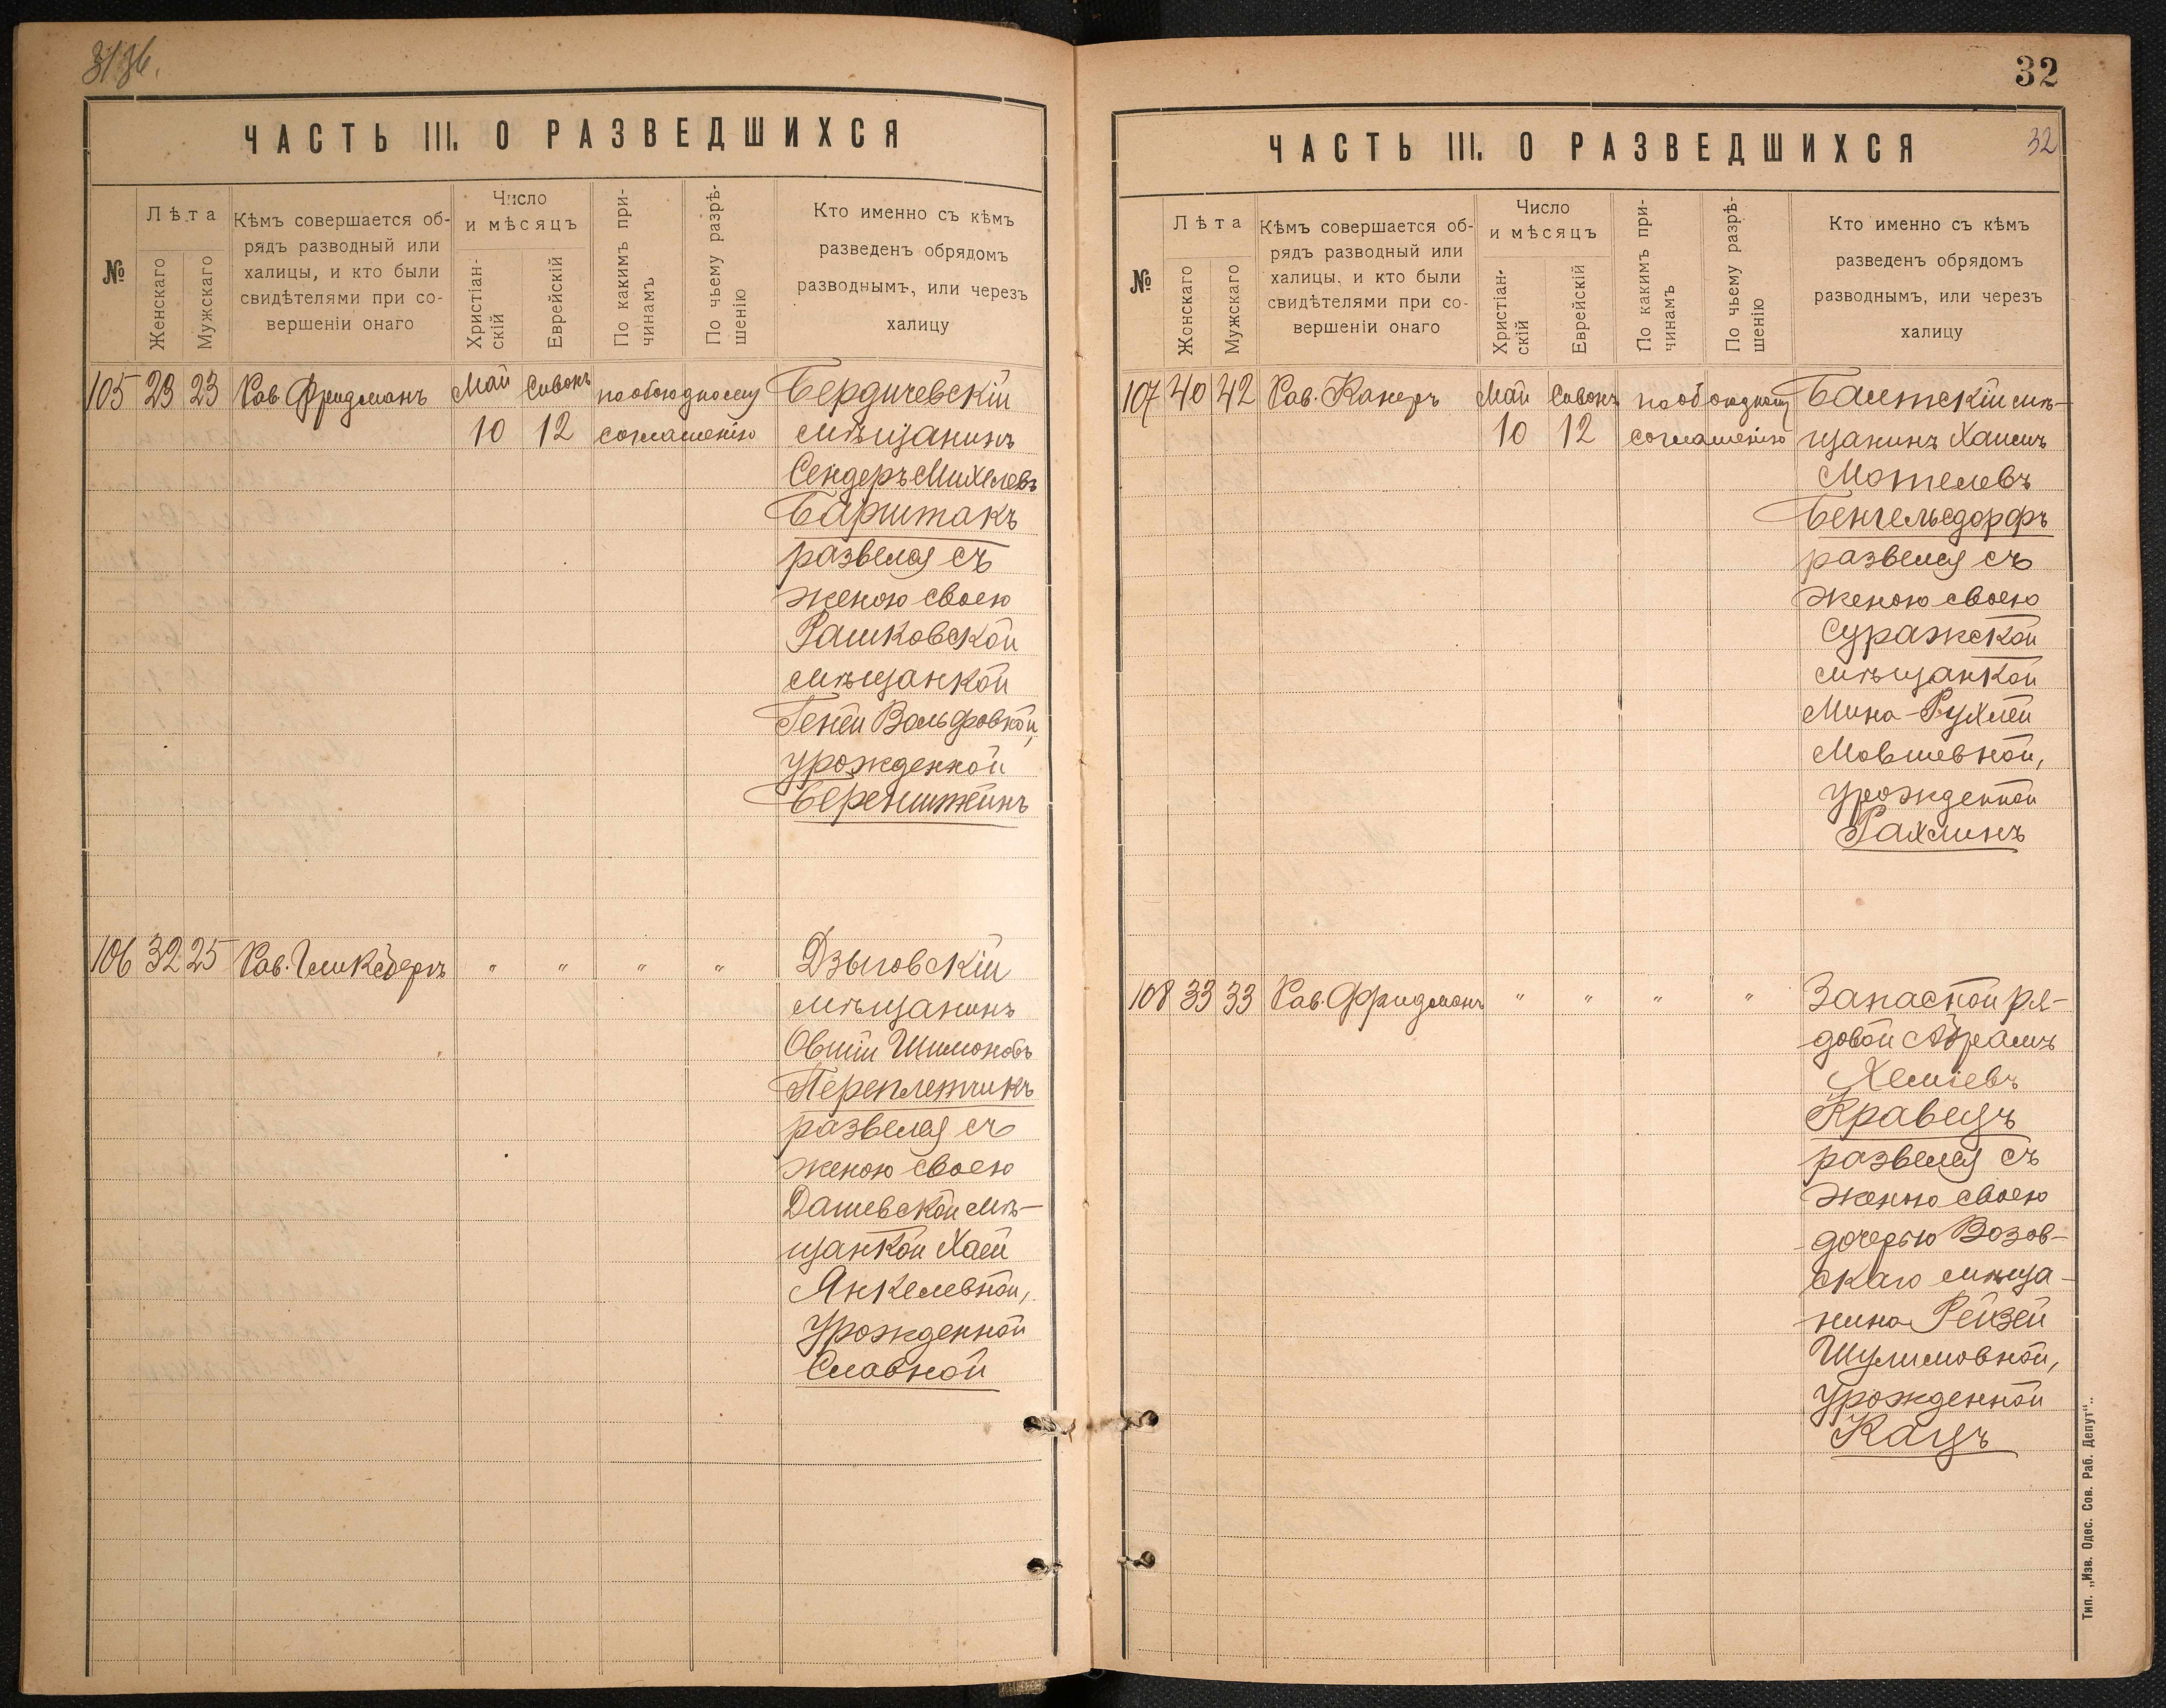 ЧАСТЬ III. О РАЗВЕДШИХСЯ
№
Лѣта
Женскаго
Мужскаго
Кѣмъ совершается об-
рядъ разводный или
халицы, и кто были
свидѣтелями при со-
вершеніи онаго
Число
и мѣсяцъ
Христіан-
скій
Еврейскій
По какимъ при-
чинамъ
По чьему разрѣ-
шенію
Кто именно съ кѣмъ
разведенъ обрядомъ
разводнымъ, или черезъ
халицу
105 23 23 Рав. Фридманъ Май Сивонъ по обоюдному Бердичевскій
10 12 соглашенію мѣщанинъ
Сендеръ Михелевъ
Барштакъ
развелся съ
женою своею
Рашковской
мѣщанкой
Геней Вольфовной,
урожденной
Беренштейнъ
106 32 25 Рав. " " " " Дзыговскій
мѣщанинъ
Овшій Шимоновъ
Переплетчикъ
развелся съ
женою своею
Дашевской мѣ-
щанкой Хаей
Янкелевной,
урожденной
Славной
32
ЧАСТЬ III. О РАЗВЕДШИХСЯ
32
№
Лѣта
Жонскаго
Мужскаго
Кѣмъ совершается об-
рядъ разводный или
халицы, и кто были
свидѣтелями при со-
вершеніи онаго
Число
и мѣсяцъ
Христіан-
скій
Еврейскій
По какимъ при-
чинамъ
По чьему разрѣ-
шенію
Кто именно съ кѣмъ
разведенъ обрядомъ
разводнымъ, или черезъ
халицу
107 40 42 Рав. Канеръ Май Сивонъ по обоюдному Балтскій мѣ-
10 12 соглашенію щанинъ Хаимъ
Мотелевъ
Бенгельсдорфъ
развелся съ
женою своею
Суражской
мѣщанкой
Мина-Рухлей
Мовшевной,
урожденной
Рахлинъ
108 33 33 Рав. Фридманъ " " " " Запасной ря-
довой Абрамъ
Хемiевъ
Кравецъ
развелся съ
женою своею
дочерью Возов-
скаго мѣща-
нина Рейзей
Шулимовной,
урожденной
Кацъ
Тип. „Изв. Одес. Сов. Раб. Депут“.